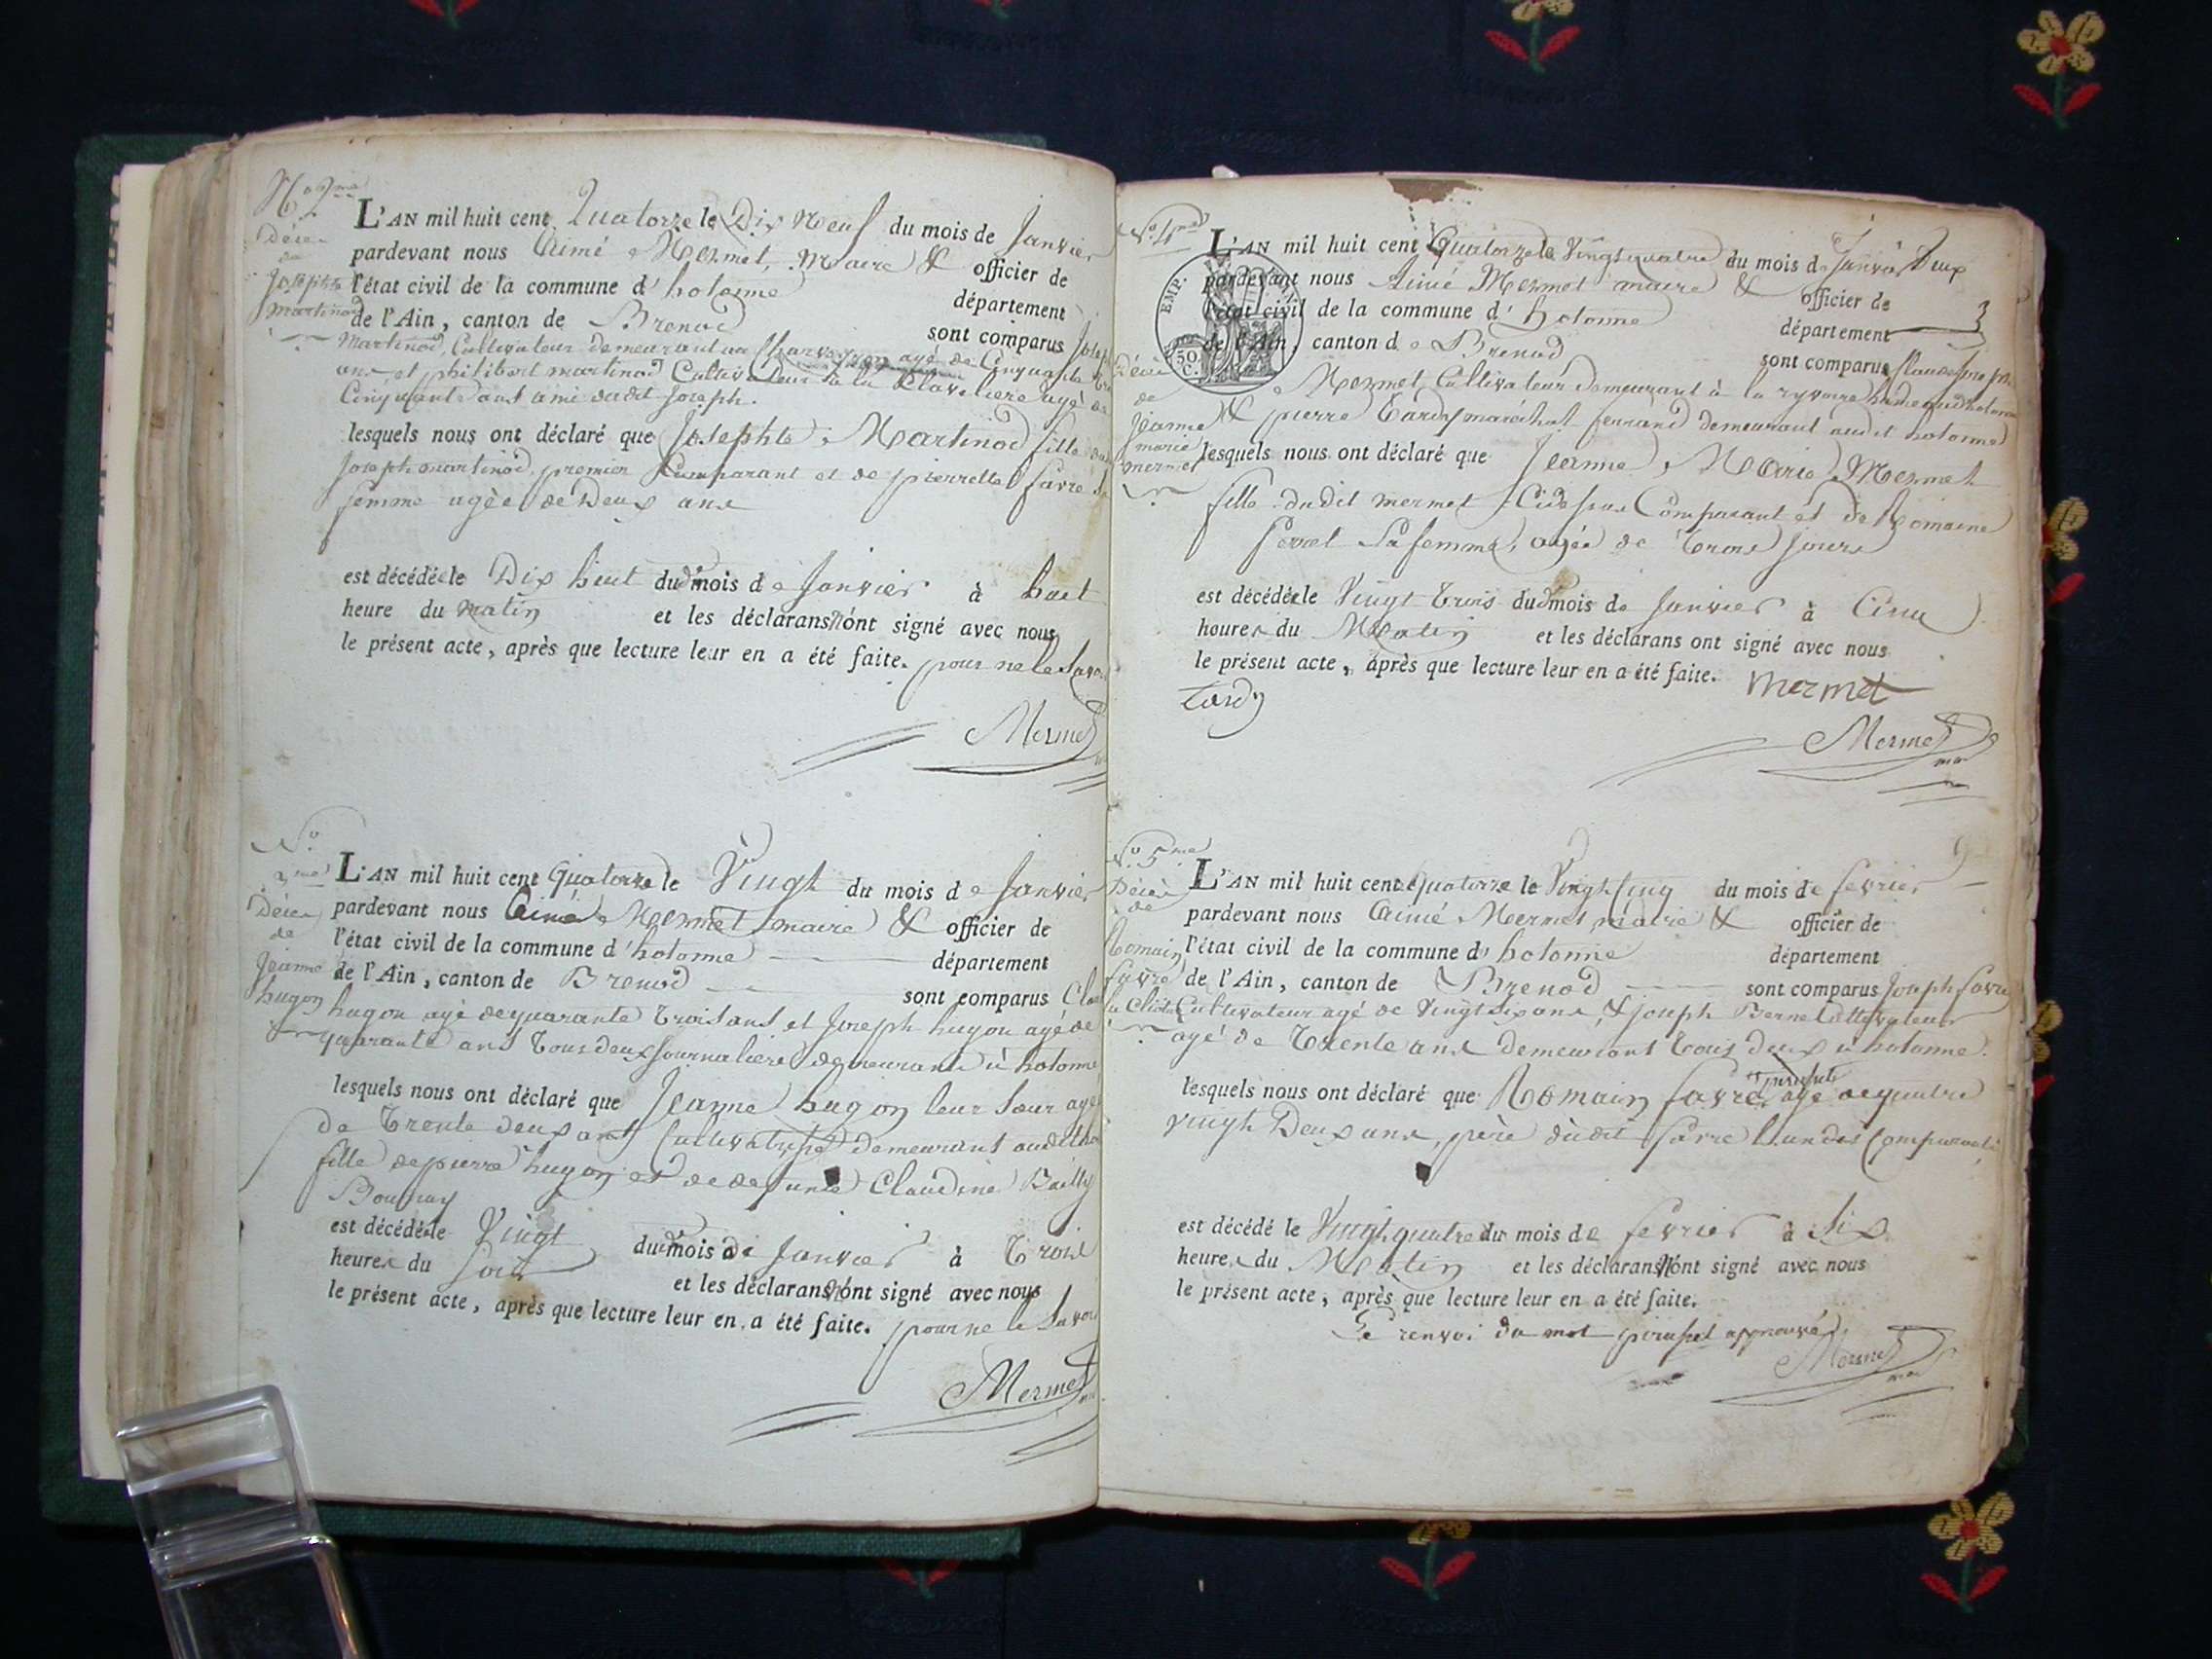 N.o 2me
Décès
de
Josephte
martinod
L'AN mil huit cent Quatorze le Dix Neuf du mois de Janvier
pardevant nous Aimé Mermet, Maire & officier de
l'état civil de la commune d'hotonne département
de l'Ain, canton de Brenod sont comparus
Martinod, Cultivateur demeurant au agé de Cinquante
ans et philibert martinod Cultivateur à la Claveliere agé de
Cinquante ans ami dudit Joseph.
lesquels nous ont déclaré que Josephte Martinod fille
Joseph martinod, premier Comparant et de pierrette favre
femme agée de Deux ans
est décédée le Dix huit dud mois de Janvier à huit
heure du matin et les déclarans n'ont signé avec nous
le présent acte, après que lecture leur en a été faite. pour ne le Savoir
Mermet
N.o
3me
Décès
de
Jeanne
hugon
L'AN mil huit cent Quatorze le Vingt du mois de Janvier
pardevant nous Aimé Mermet maire & officier de
l'état civil de la commune d'hotonne département
de l'Ain, canton de Brenod sont comparus
hugon agé de quarante Trois ans et Joseph hugon agé de
quarante ans Tous deux Journaliers demeurants à hotonne
lesquels nous ont déclaré que Jeanne hugon leur Sœur agée
de Trente deux ans Cultivatrice demeurant audit
fille de pierre hugon et de defunte Claudine Bailly
est décédée le Vingt dud mois de Janvier à Trois
heures du Soir et les déclarans n'ont signé avec nous
le présent acte, après que lecture leur en a été faite. pour ne le Savoir
Mermet
N.o 4me
Décès
de
Jeanne
marie
mermet
EMP.
50
C.
L'AN mil huit cent Quatorze le Vingt quatre du mois de Janvier Deux
pardevant nous Aimé Mermet maire & officier de
l'état civil de la commune d'hotonne département 3
de l'Ain, canton de Brenod sont comparus
Mermet, Cultivateur demeurant à la ryvoire hameau d'hotonne
& pierre Tardy maréchal ferrand demeurant audit hotonne
lesquels nous ont déclaré que Jeanne Marie Mermet
fille dudit mermet Cidessus Comparant et de Romaine
Perret Sa femme, agée de Trois Jours
est décédée le Vingt Trois dud mois de Janvier à Cinq
heures du Matin et les déclarans ont signé avec nous
le présent acte, après que lecture leur en a été faite. mermet
Tardy
Mermet
N.o 5me
Décès
de
Romain
favre
L'AN mil huit cent Quatorze le Vingt Cinq du mois de fevrier
pardevant nous Aimé Mermet, maire & officier de
l'état civil de la commune d'hotonne département
de l'Ain, canton de Brenod sont comparus Joseph favre
Cultivateur agé de Vingt Six ans, & Joseph Berne Cultivateur
agé de Trente ans demeurants Tous deux à hotonne.
lesquels nous ont déclaré que Romain favre agé de quatre
vingt Deux ans, père dudit favre l'un des Comparants
est décédé le Vingt quatre du mois de fevrier à Six
heures du Matin et les déclarans n'ont signé avec nous
le présent acte, après que lecture leur en a été faite.
Le renvoi du mot approuvé
Mermet